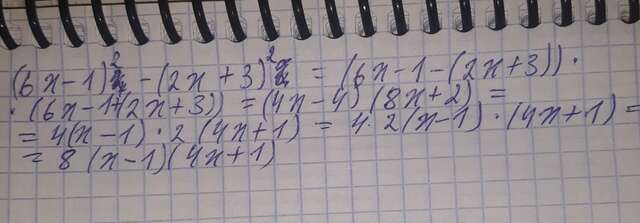 (6x-1)² - (2x+3)² = (6x-1-(2x+3)) ·
· (6x-1+(2x+3)) = (4x-4) (8x+2) =
= 4(x-1) · 2 (4x+1) = 4 · 2(x-1) · (4x+1) =
= 8 (x-1)(4x+1)